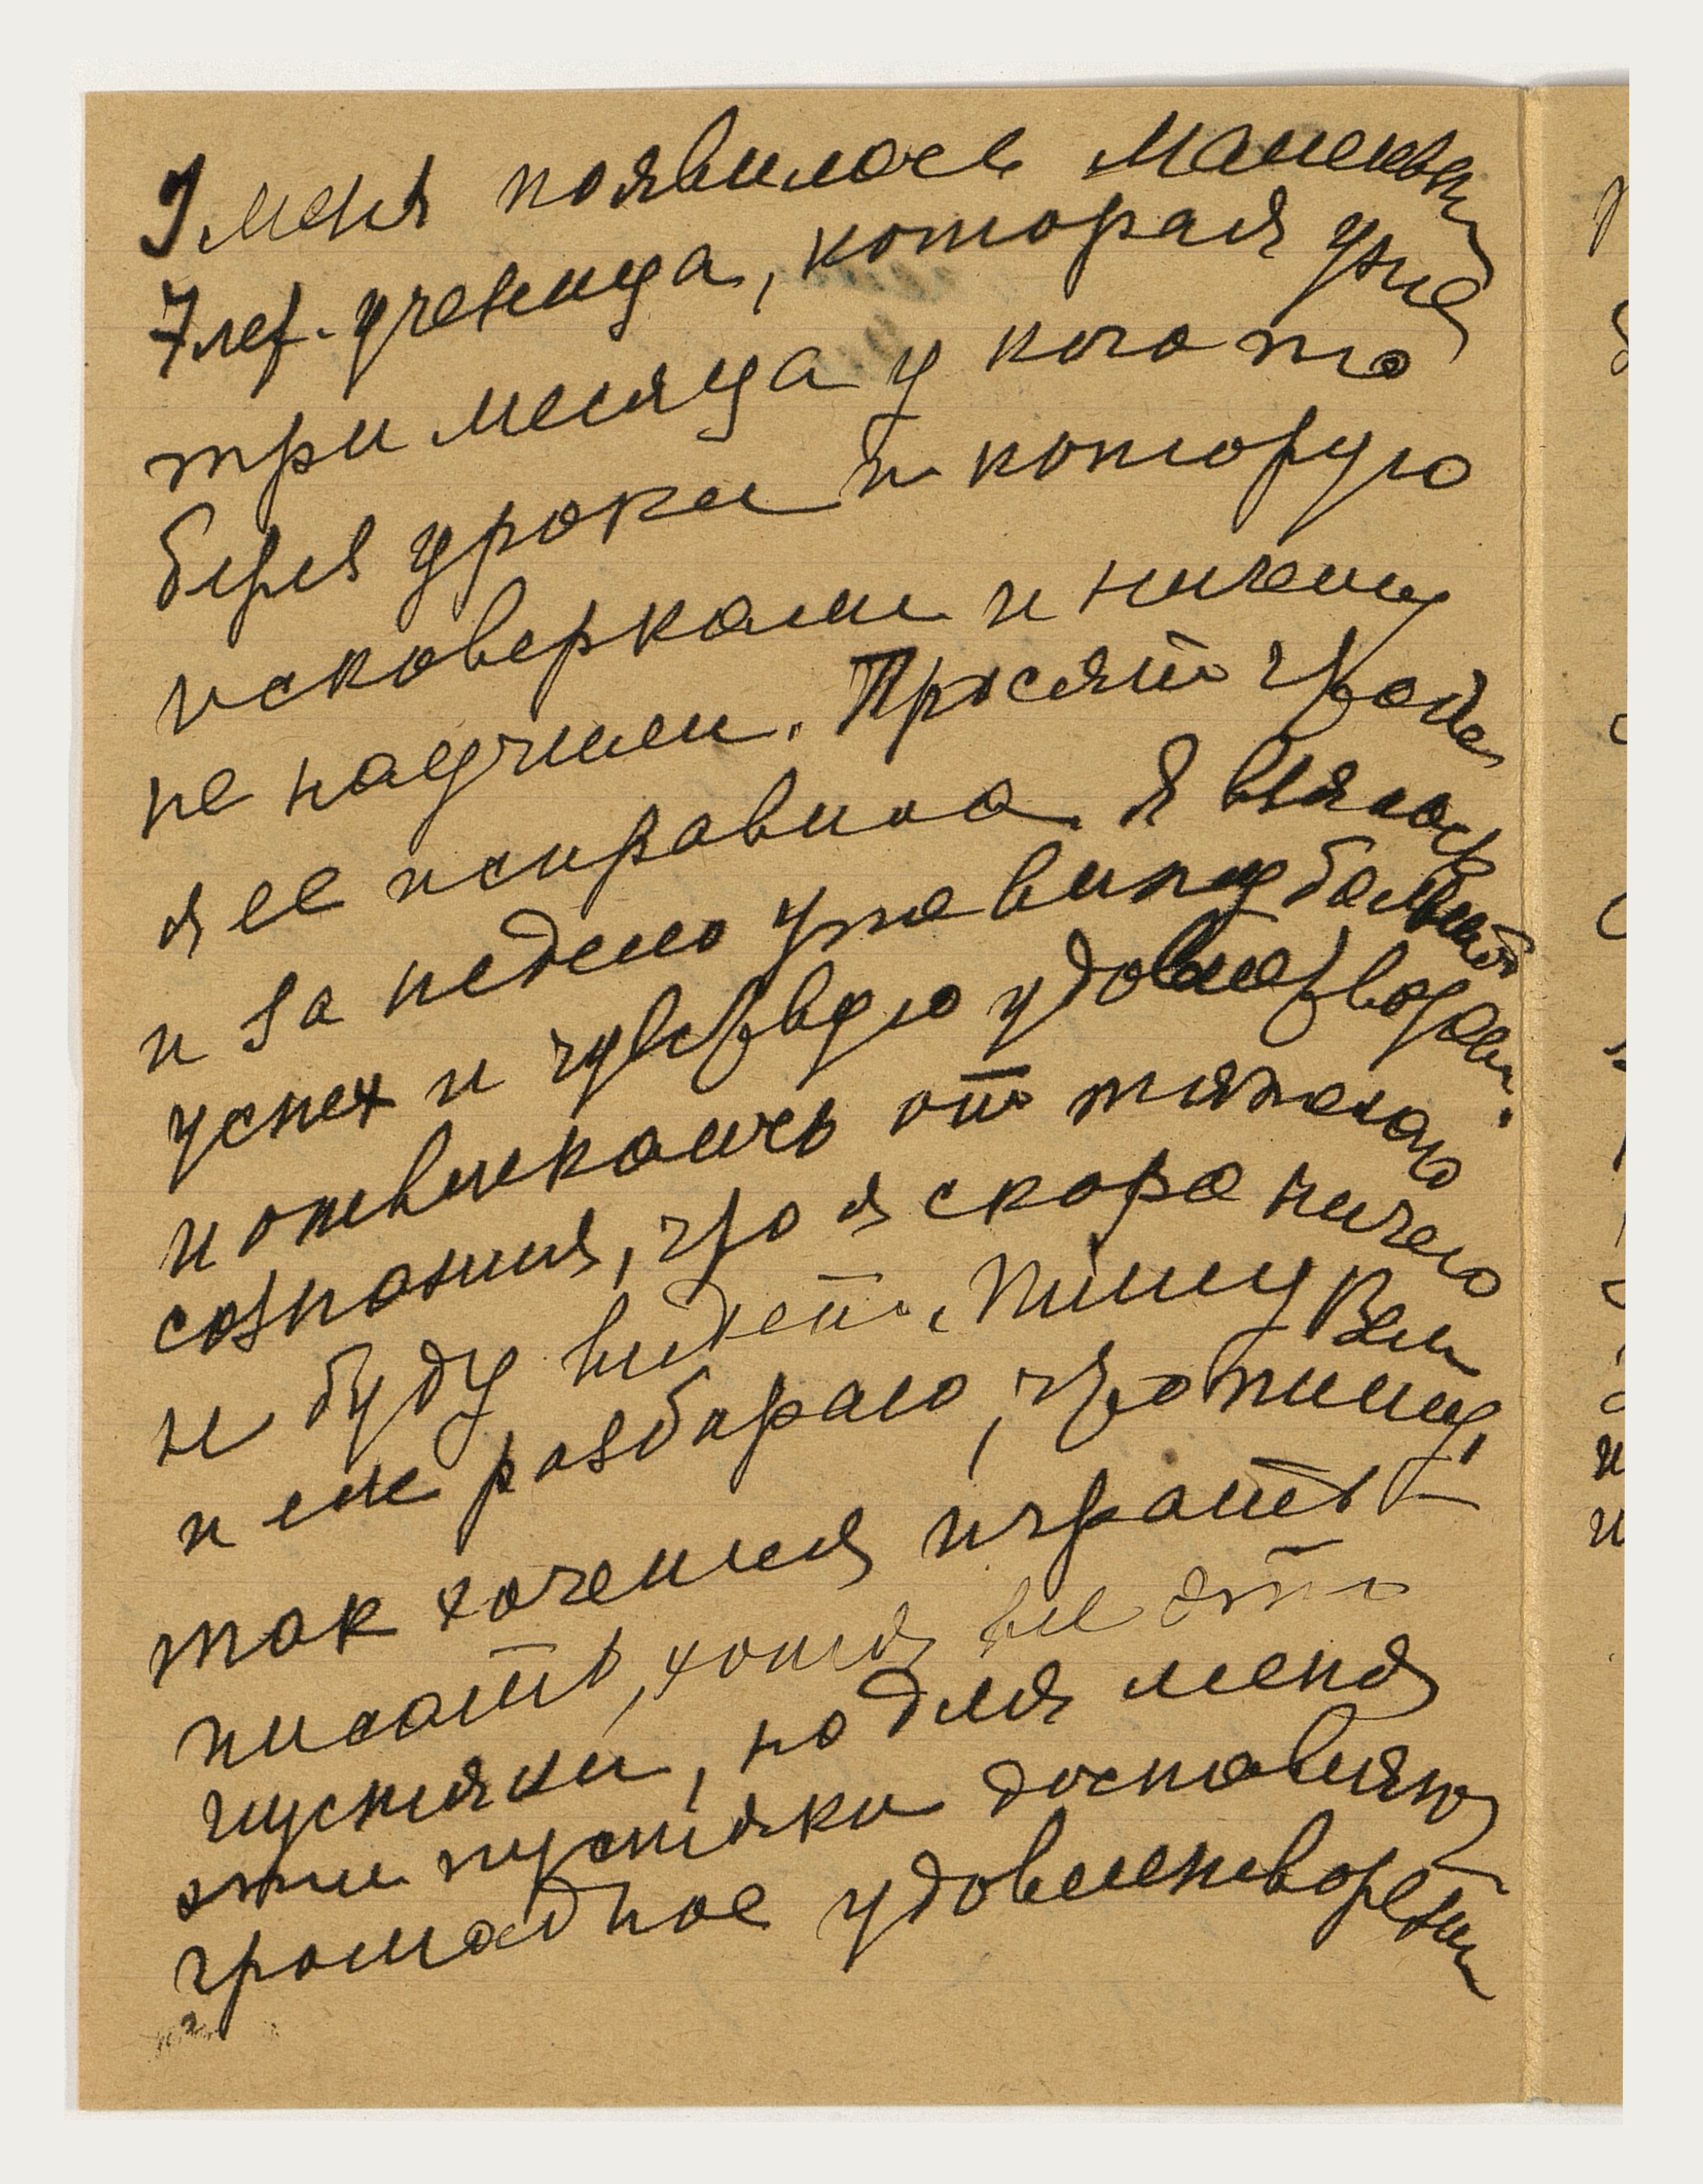 У меня появилось маленька
7 лет. ученица, которая уже
три месяца у кого то
берет уроки и которую
исковеркали и ничему
не научили. Просят чтобы
я ее исправила. Я взялась
и за неделю уже вижу большой
успех и чувствую удовлетворен.
и отвлекаюсь от тяжелого
сознания, что я скоро ничего
не буду видеть. Пишу Вам
и не разбираю, что пишу,
так хочется играть –
писать, хотя все это
пустяки, но для меня
эти пустяки доставляют
громадное удовлетворени